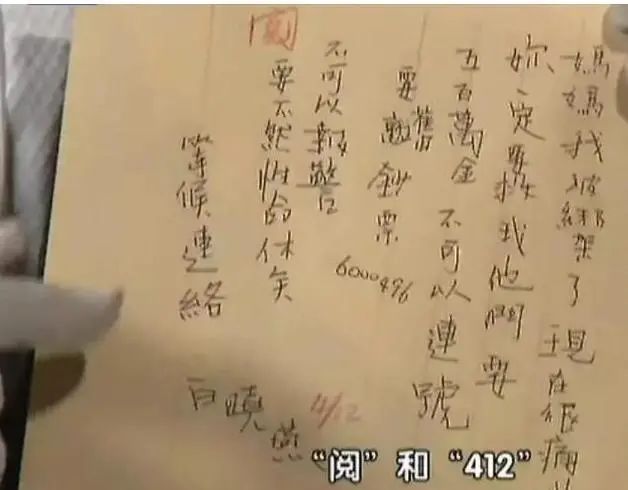 媽媽我被綁架了現在很痛
妳一定要救我他們要
五百萬美金不可以連號
要舊鈔票
6000496
不可以報警
要不然性命休矣
閱
等候連絡
白曉燕
4/12
“阅”和“412”